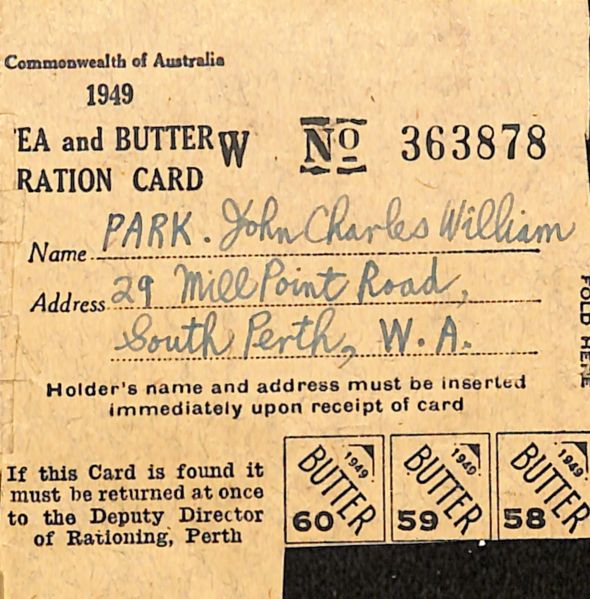 Commonwealth of Australia
1949
EA and BUTTER W
RATION CARD
No 363878
Name PARK. John Charles William
Address 29 Mill Point Road,
South Perth, W.A.
Holder's name and address must be inserted
immediately upon receipt of card
FOLD HERE
If this Card is found it
must be returned at once
to the Deputy Director
of Rationing, Perth
1949 BUTTER 60
1949 BUTTER 59
1949 BUTTER 58